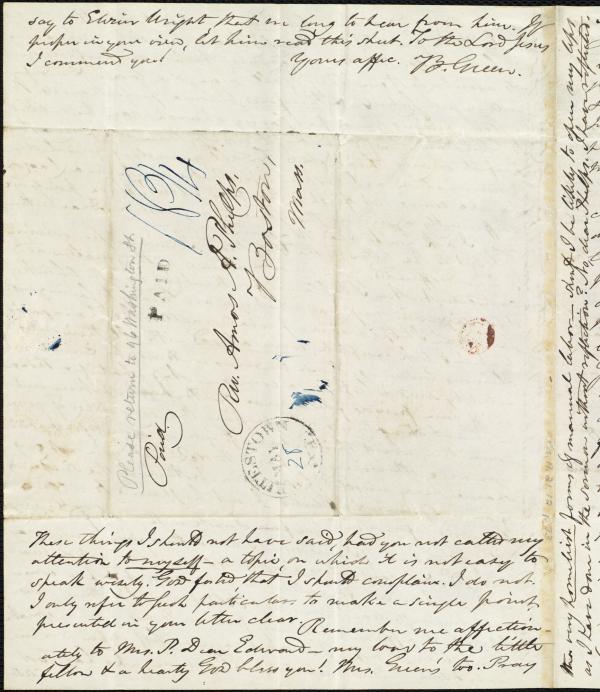 say to Elizur Wright that we long to hear from him. If
proper in your view, let him read this sheet. To the Lord Jesus
I commend you!
Yours affec. B. Green.
18¾
Please return to 46 Washington St
PAID
Paid.
Rev. Amos A. Phelps.
Boston,
Mass.
WHITESTOWN
MAY
28
N.Y.
These things I should not have said, had you not called my
attention to myself—a topic, on which it is not easy to
speak wisely. God forbid that I should complain. I do not.
I only refer to such particulars to make a single point
presented in your letter clear.
Remember me affection-
ately to Mrs. P. Dear Edward—my love to the little
fellow & a hearty God bless you! Mrs. Green's too. Pray
very homelish forms of manual labor— should I be likely to open my lips
as I have done in the sermon without reflection? No, dear Phelps. I have reflected.